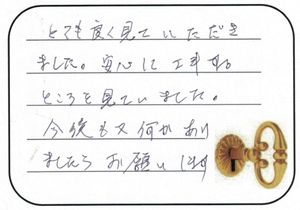 とても良く見ていただき
ました。安心して工事する
ところを見ていました。
今後も又何かあり
ましたらお願いします